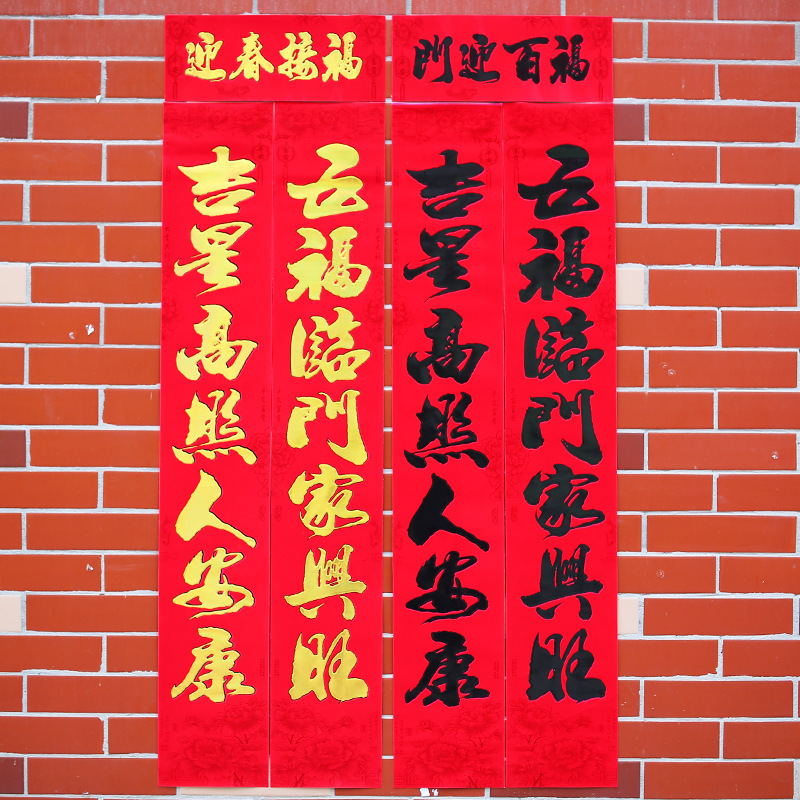 迎春接福
五福臨門家興旺
吉星高照人安康
門迎百福
五福臨門家興旺
吉星高照人安康